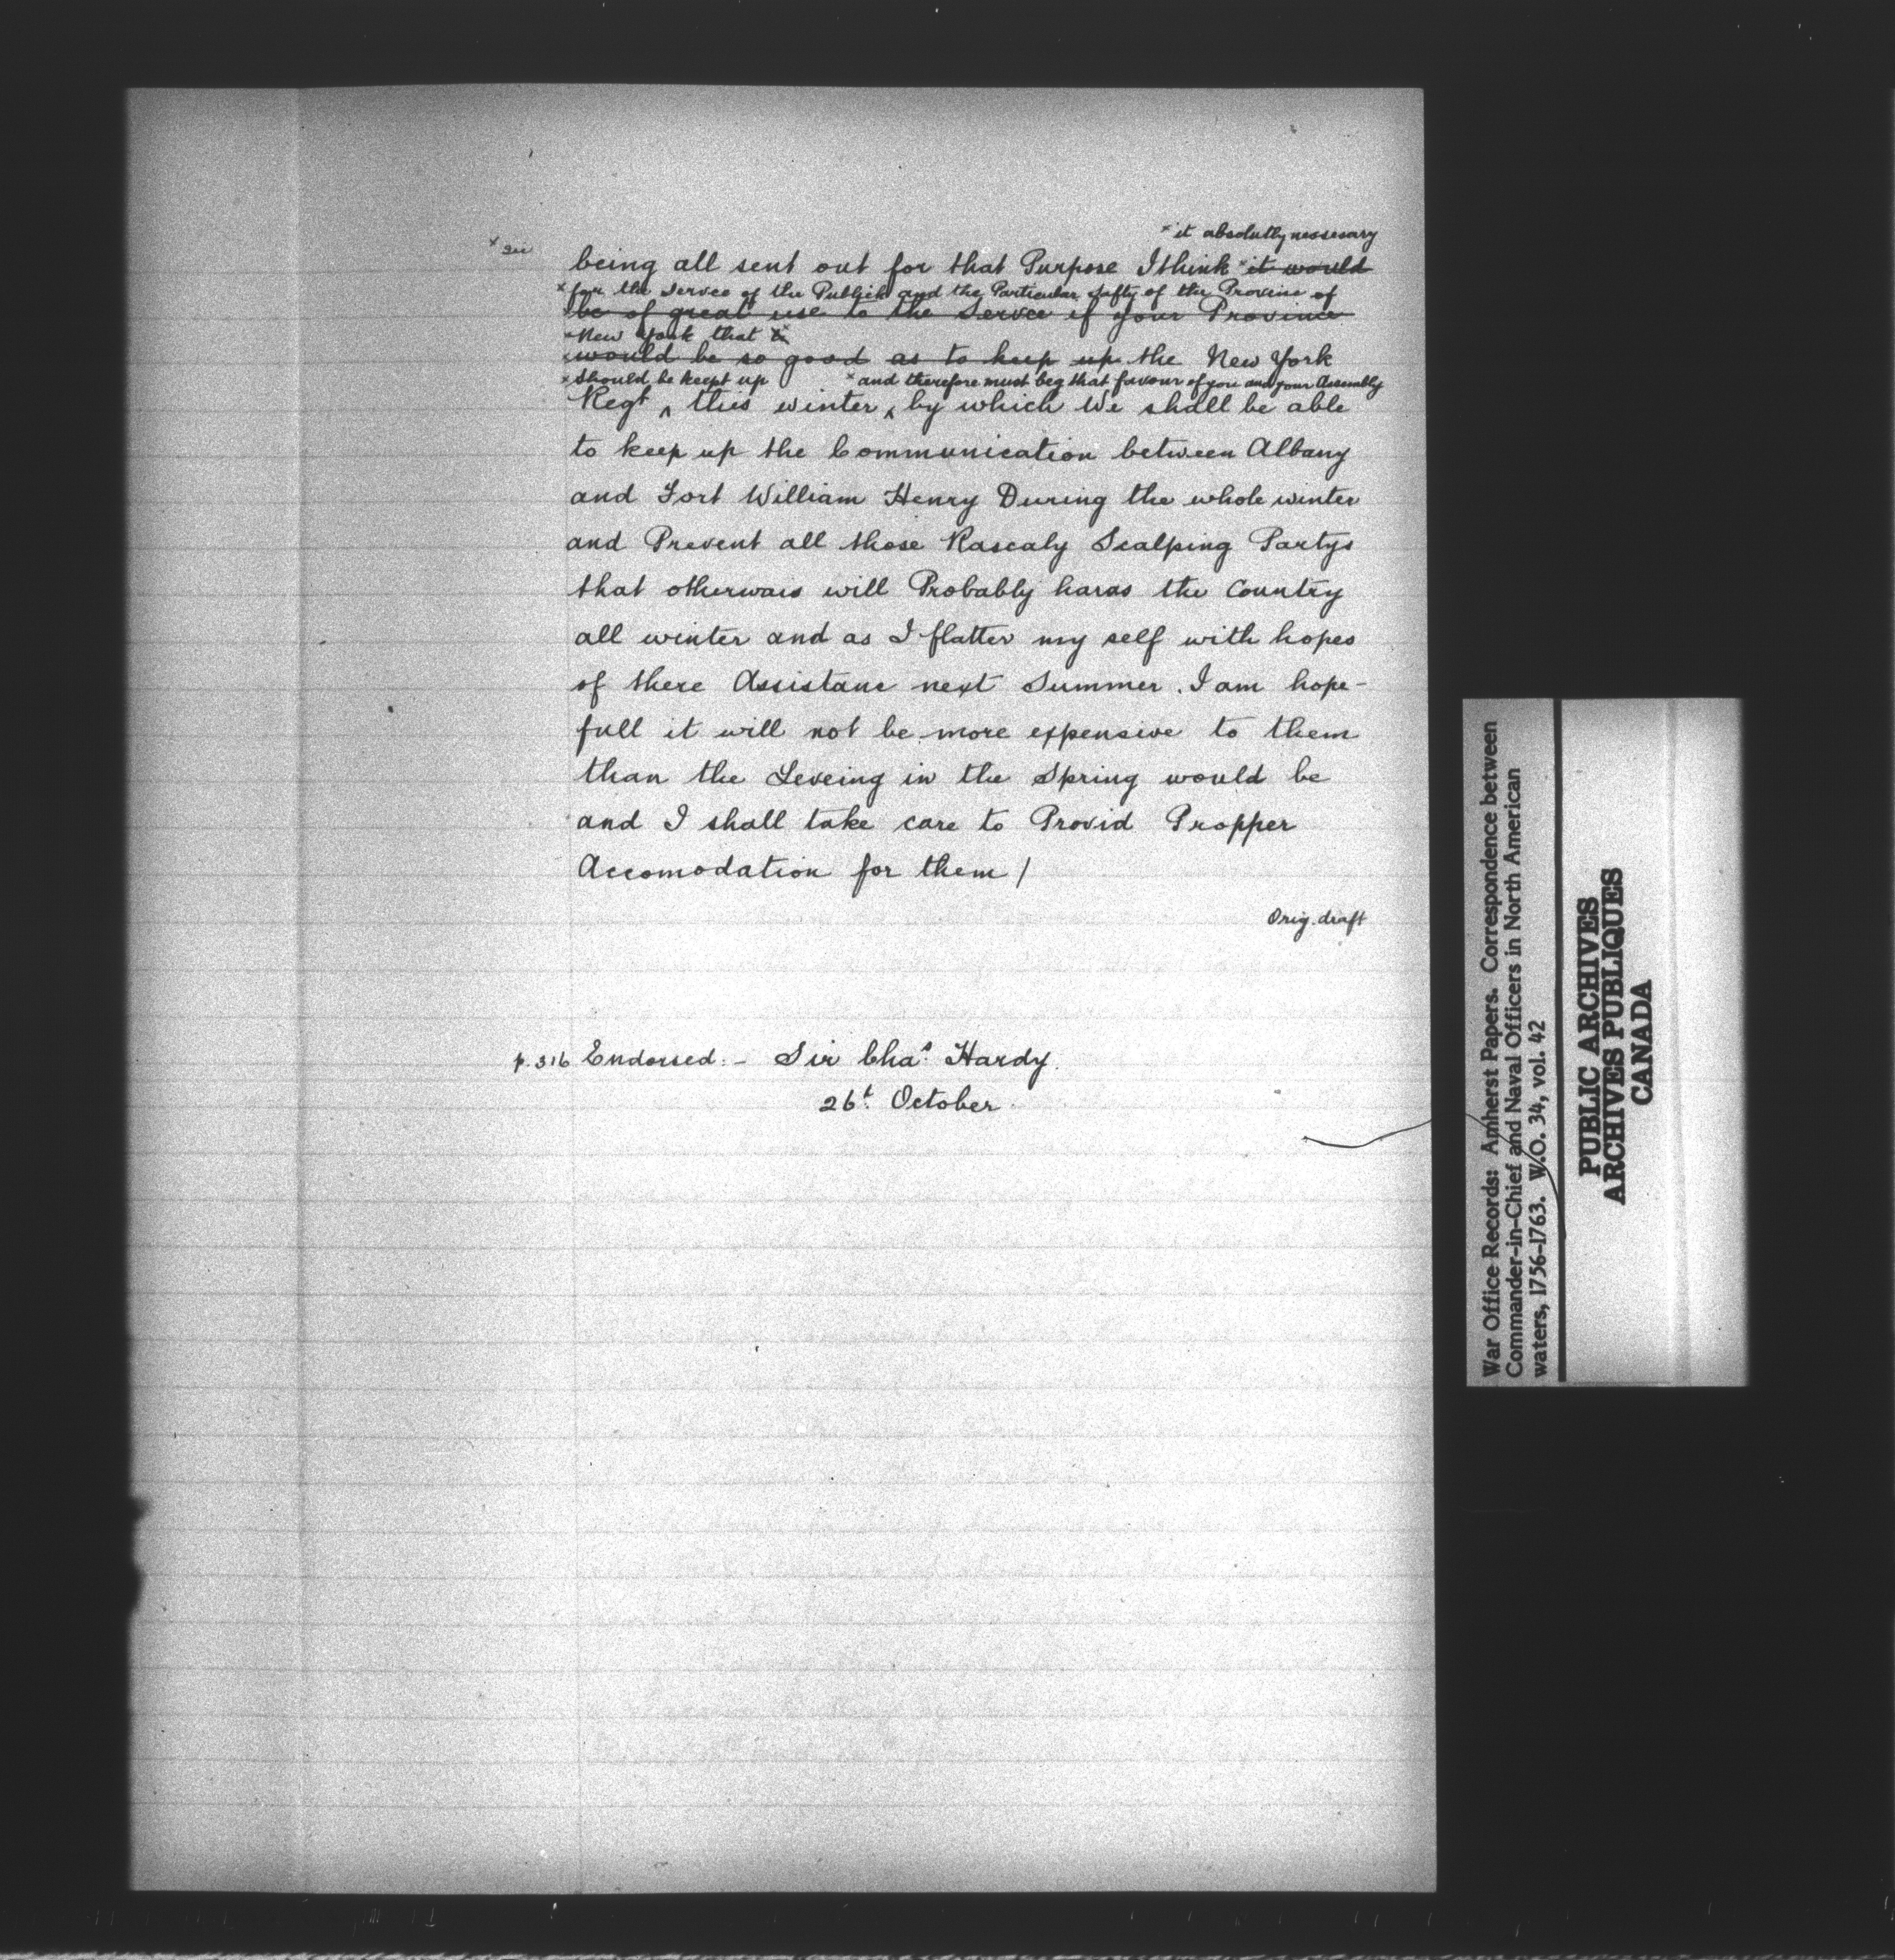 × it absolutly nessesary
× sic
being all sent out for that Purpose I think × it would
× for the Service of the Publick and the Particular Safty of the Provine of
be of great use to the Service if your Province
× New York that
would be so good as to keep up the New York
× Should be keept up × and therefore must beg that favour of you and your Assembly
Regt ‸ this winter ‸ by which We shall be able
to keep up the Communication between Albany
and Fort William Henry During the whole winter
and Prevent all those Rascaly Scalping Partys
that otherwais will Probably haras the Country
all winter and as I flatter my self with hopes
of there Assistane next Summer. I am hope-
full it will not be more expensive to them
than the Leveing in the Spring would be
and I shall take care to Provid Propper
Accomodation for them /
Orig. draft
p. 316 Endorsed:- Sir Chas. Hardy.
26t. October
War Office Records: Amherst Papers. Correspondence between
Commander-in-Chief and Naval Officers in North American
waters, 1756-1763. W.O. 34, vol. 42
PUBLIC ARCHIVES
ARCHIVES PUBLIQUES
CANADA